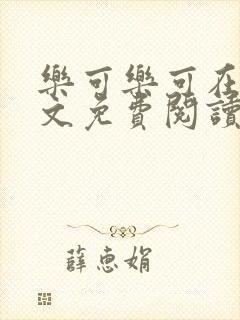 樂可樂可在
文免費閱讀
薛惠娟